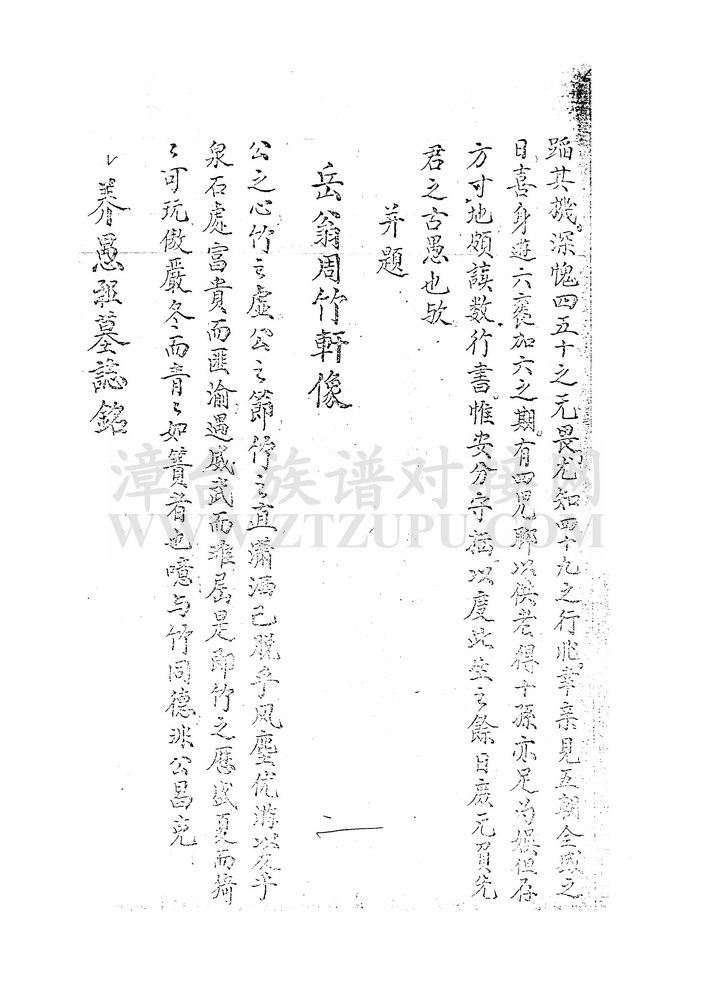 蹈其機。深愧四五十之无畏。尤知四十九之行非。幸亲見五朝全盛之
日。喜身遊六褒加六之期。有四兒聊以供老。得十孫亦足为娱。但存
方寸地。頗讀数行書。惟安分守拙。以度此生之餘日。庶无負先
君之古愚也欤
并題
岳翁周竹軒像
公之心竹之虚公之節竹之直瀟洒已脱乎风塵优游以友乎
泉石處富貴而匪渝遇威武而难屈是即竹之歷盛夏而猗
〻可玩傲嚴冬而青〻如簀者也噫与竹同德非公曷克
養愚祖墓誌銘
漳台族谱对接网
WWW.ZTZUPU.COM